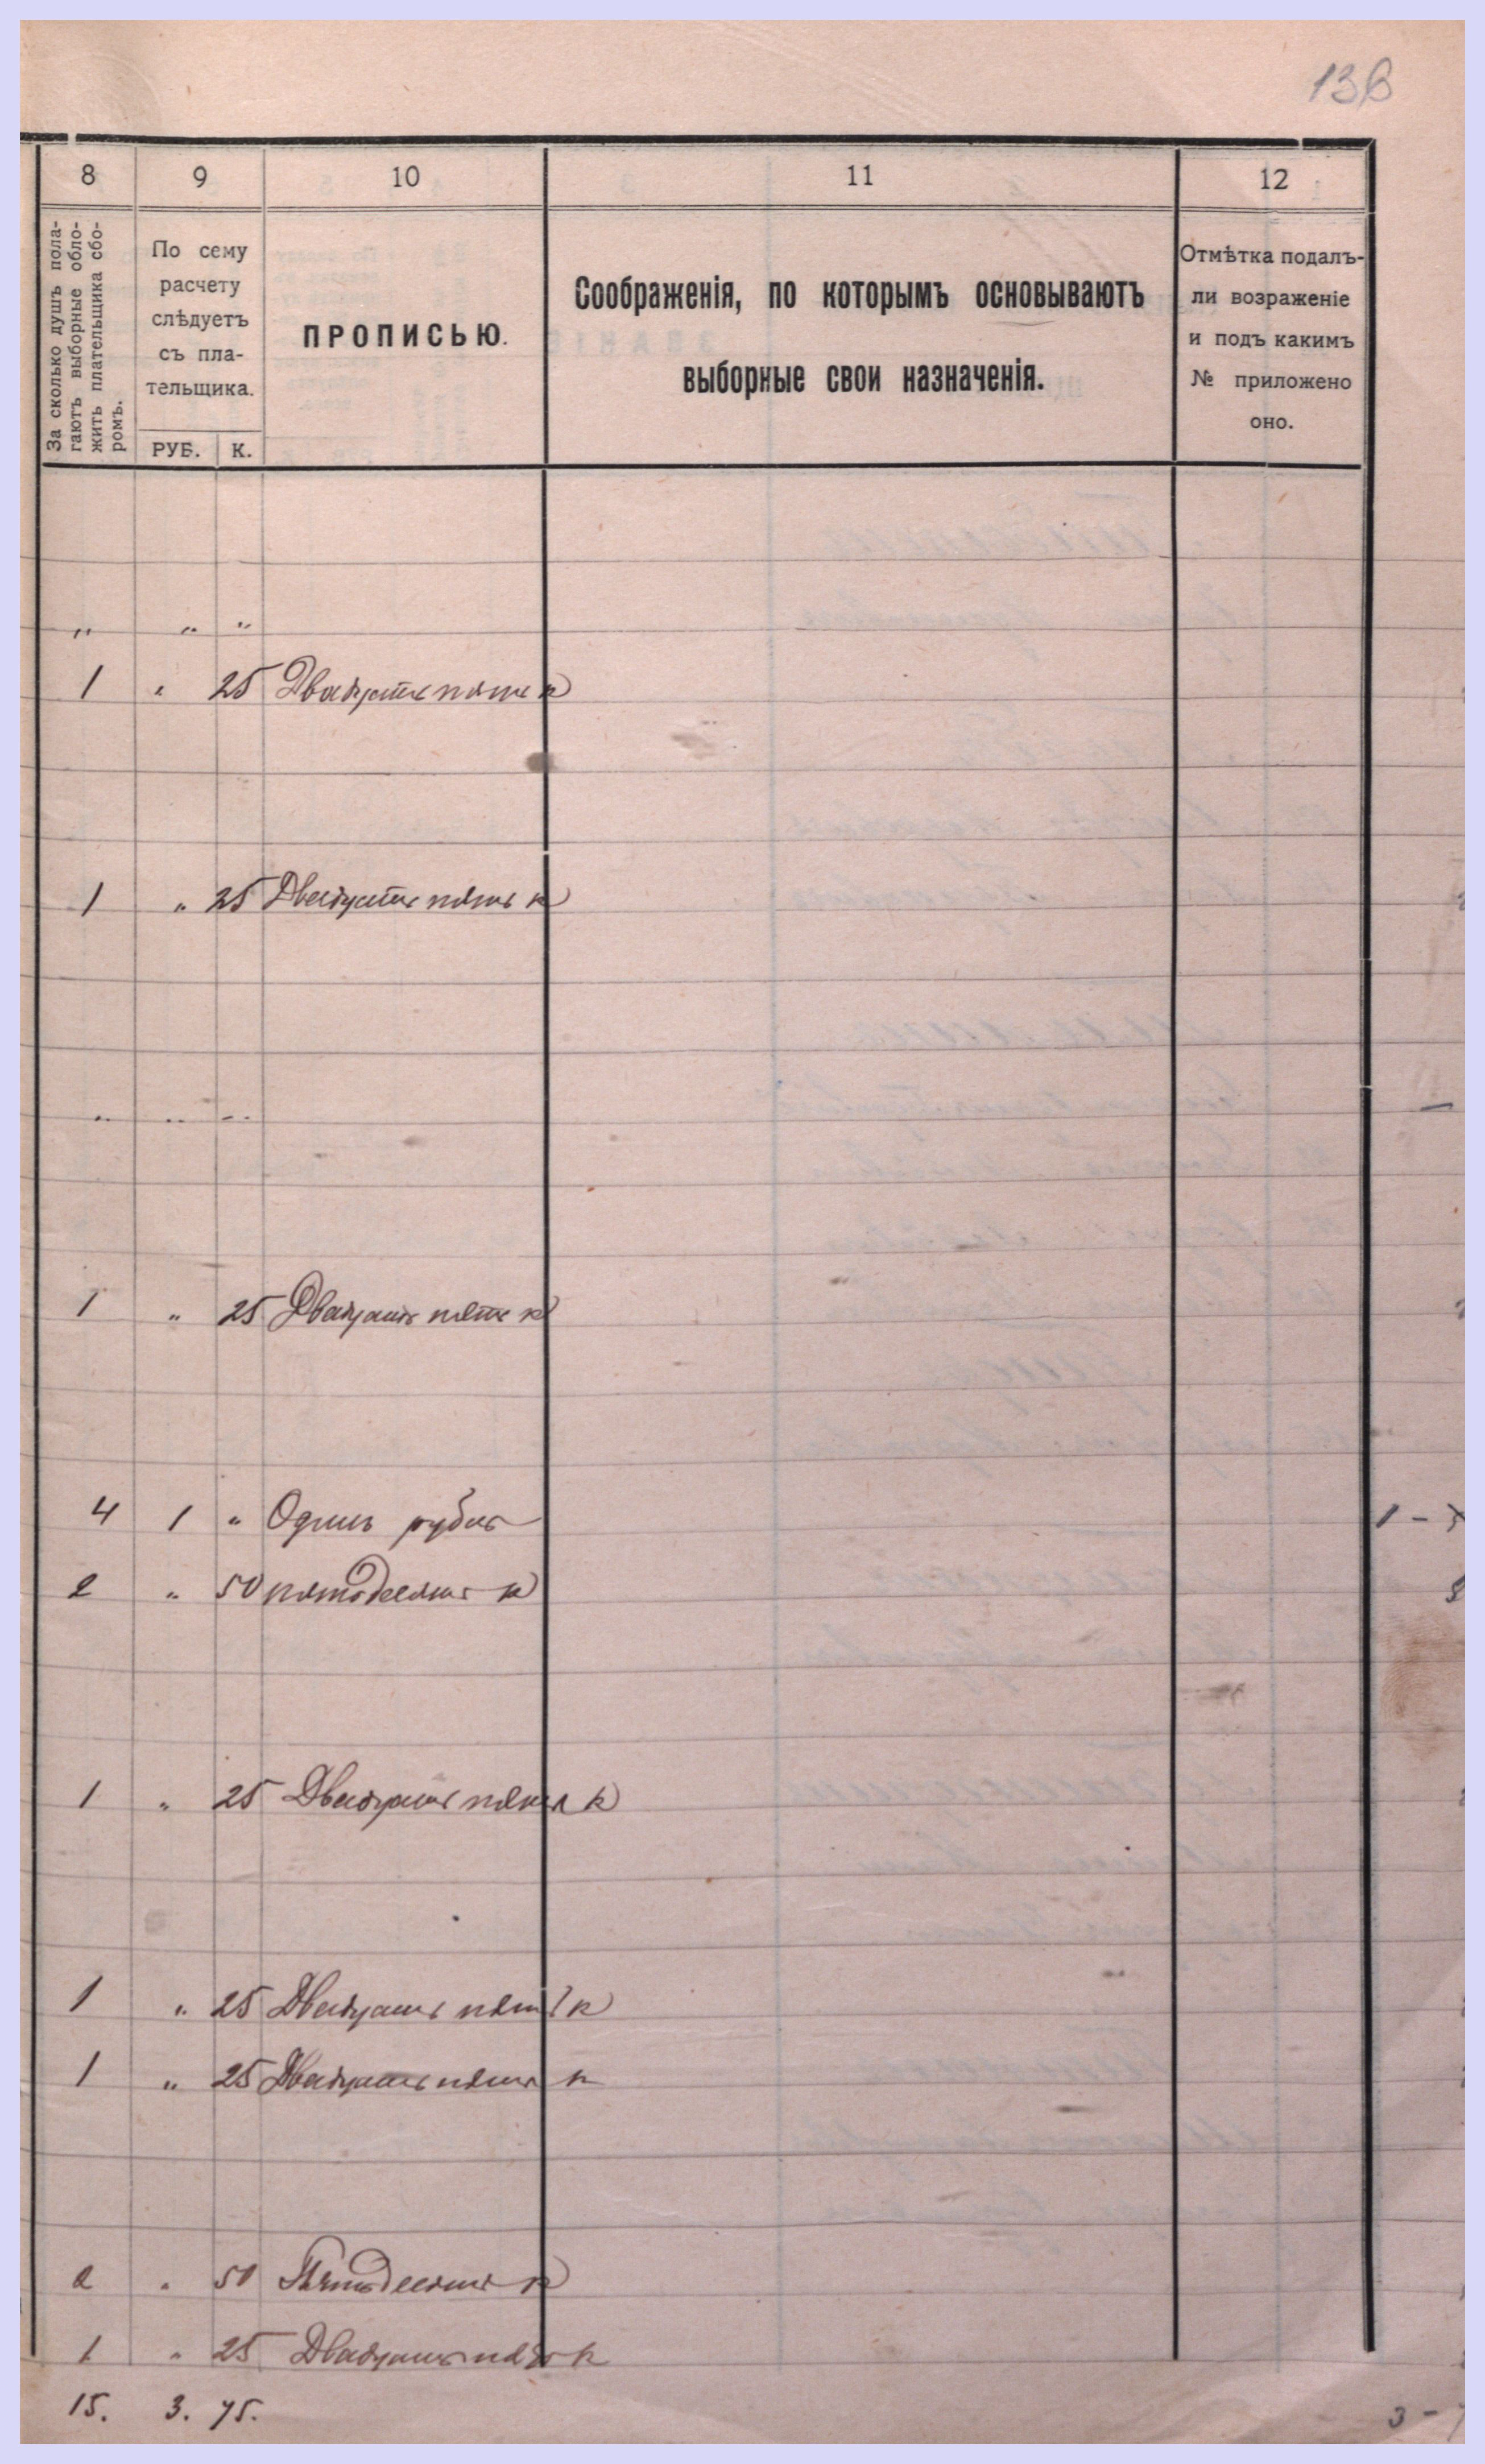 136
8 9 10 11 12
За сколько душъ пола-
гаютъ выборные обло-
жить плательщика сбо-
ромъ.
По сему
расчету
слѣдуетъ
съ пла-
тельщика.
РУБ. К.
ПРОПИСЬЮ.
Соображенія, по которымъ основываютъ
выборные свои назначенія.
Отмѣтка подалъ-
ли возраженіе
и подъ какимъ
№ приложено
оно.
„ „ „
1 „ 25 Двадцать пять к
1 „ 25 Двадцать пять к
„ „ „
1 „ 25 Двадцать пять к
4 1 „ Одинъ рубль
2 „ 50 пятьдесятъ к
1 „ 25 Двадцать пять к
1 „ 25 Двадцать пять к
1 „ 25 Двадцать пять к
2 „ 50 Пятьдесятъ к
1 „ 25 Двадцать пять к
15. 3. 75.